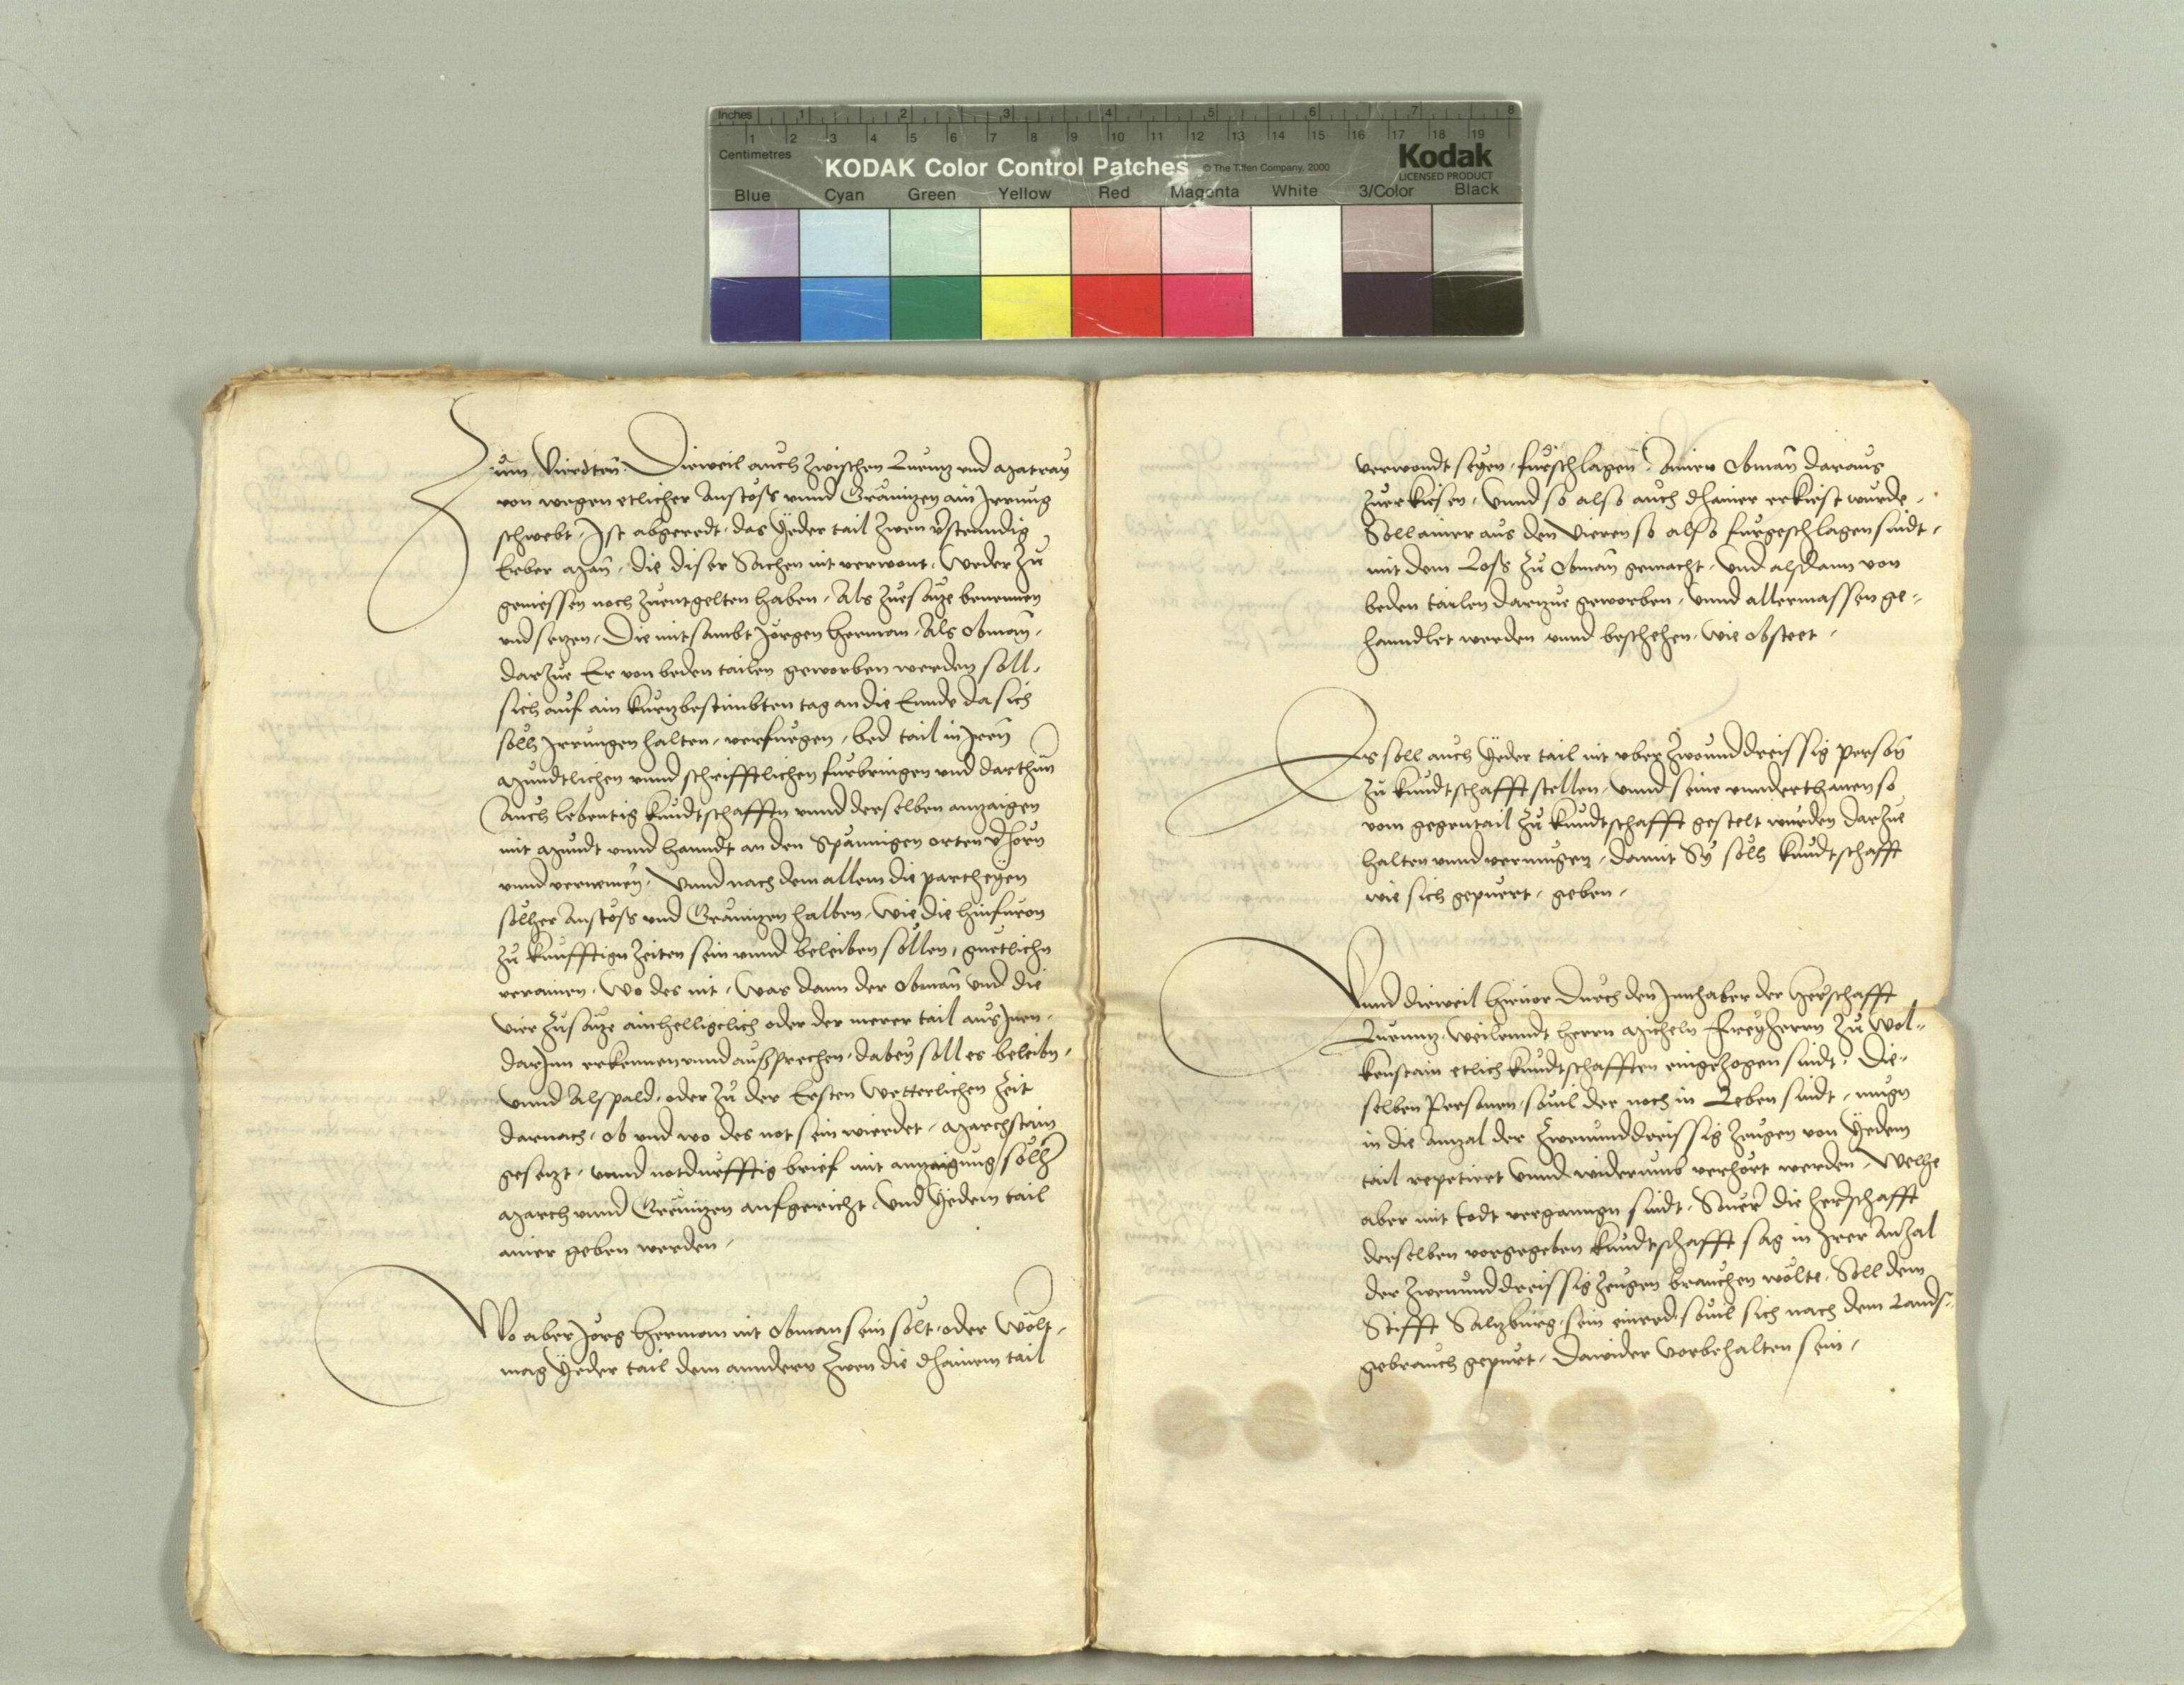 Inches 1 2 3 4 5 6 7 8
1 2 3 4 5 6 7 8 9 10 11 12 13 14 15 16 17 18 19
Centimetres
KODAK Color Control Patches © The Tiffen Company, 2000 Kodak
LICENSED PRODUCT
Blue Cyan Green Yellow Red Magenta White 3/Color Black
Zum Vierdten. Dieweil auch zwischen Luenntz und Matray
von wegen etlicher Anstöss unnd Gränitzen ain Irrung
schwebt, Ist abgeredt, das Yeder tail zwen verstenndig
Erber Man, die diser Sachen nit verwont, Weder zu
geniessen noch zuentgelten haben, Als zuesätze benennen
und setzen, Die mitsambt Jörgen Herman, Als Obman,
darzue Er von beden tailen geworben werden soll,
sich auf ain kurtz bestimbten tag an die Ennde da sich
solh Irrungen halten, verfuegen, bed tail in Iren
Mundtlichen unnd schrifftlichen furbringen und darthun
Auch lebentig kundtschafften unnd derselben anzaigen
mit Mundt unnd hanndt an den Spännigen orten verhörn
unnd vernemen, Unnd nach dem allem die partheyen
solher Anstöss und Gränitzen halben, Wie die hinfuron
zu kunfftign Zeiten sein unnd beleiben sollen, guetlichn
verainen, Wo des nit, Was dann der Obman und die
Vier zusätze ainhelligelich oder der merer tail aus Inen,
darInn erkennen unnd aussprechen, dabey soll es beleibn,
Unnd Alspald, oder zu der Ersten Wetterlichen Zeit
darnach, ob und wo des not sein wierdet, Marchstain
gesetzt, unnd notdurfftig brief mit anzaigung solher
March unnd Gränitzen aufgericht, Und Yedem tail
ainer geben werden,
Wo aber Jörg Herman nit Obman sein solt, oder Wolt,
mag Yeder tail dem anndern Zwen die dhainem tail
verwondt seyen, furschlagen, Ainen Obman daraus
zuerkiesen, Unnd so also auch dhainer erkiest wurde,
Soll ainer aus den Vieren so also furgeschlagen sindt,
mit dem Loss zu Obman gemacht, Und alsdann von
beden tailen darzue geworben, Unnd allermassen ge-
hanndlet werden unnd beschehen, Wie obsteet,
Es soll auch Yeder tail nit uber zwounddreissig person
zu kundtschafft stellen, Unnd seine unnderthanen so
vom gegentail zu kundtschafft gestelt wurden darzue
halten unnd vermugen, damit Sy solh kundtschafft
wie sich gepuert, geben,
Unnd dieweil hievor Durch den Innhaber der Herschafft
Luenntz, Weilenndt herrn Micheln Freyherrn zu Wol-
kenstain etlich kundtschafften eingezogen sindt, Die-
selben Personen, sovil der noch in Leben sindt, mugn
in die Anzal der Zwenunddreissig zeugen von Yedem
tail repetiert Unnd widerumb verhört werden, Welhe
aber mit todt vergangen sindt, die herschafft
derselben vorgegeben kundtschafft sag in Irer Anzal
der Zwenunddreissig zeugen brauchen wolte, Soll dem
Stifft Saltzburg, sein einred, sovil sich nach dem Lands-
gebrauch gepurt, Dawider Vorbehalten sein,